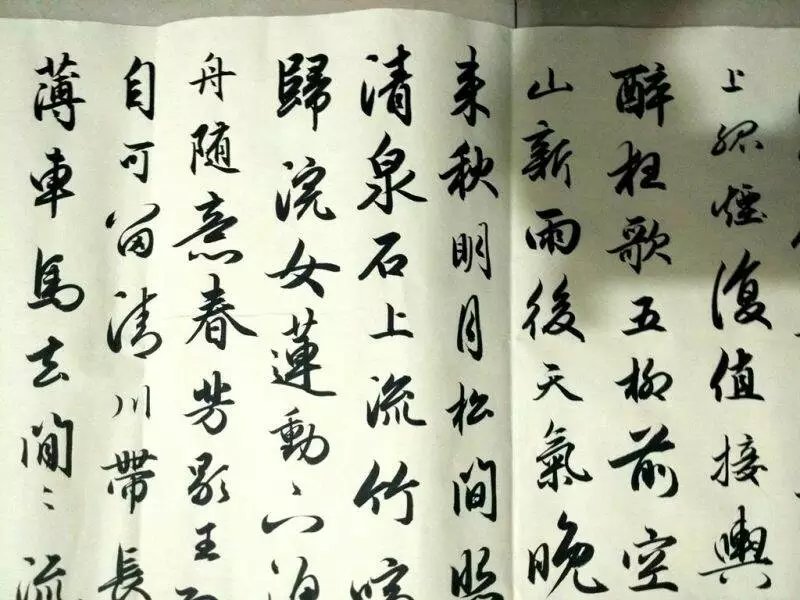 上孤煙復值接輿
醉狂歌五柳前空
山新雨後天氣晚
来秋明月松間照
清泉石上流竹喧
歸浣女蓮動下漁
舟随意春芳歇王
自可留清川帶長
薄車馬去閒〻流